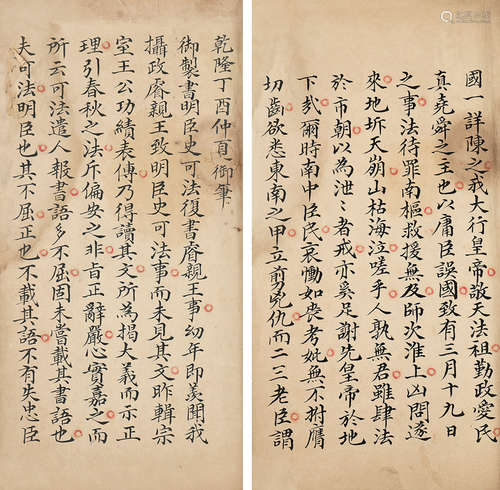 乾隆丁酉仲夏御筆
御製書明臣史可法復書睿親王事幼年即羨聞我
攝政睿親王致明臣史可法事而未見其文昨輯宗
室王公功績表傳乃得讀其文所為揭大義而示正
理引春秋之法斥偏安之非旨正辭嚴心實嘉之而
所云可法遣人報書語多不屈固未嘗載其書語也
夫可法明臣也其不屈正也不載其語不有失忠臣
國一詳陳之我大行皇帝敬天法祖勤政愛民
真堯舜之主也以庸臣誤國致有三月十九日
之事法待罪南樞救援無及師次淮上凶問遂
來地坼天崩山枯海泣嗟乎人孰無君雖肆法
於市朝以為泄〻者戒亦奚足謝先皇帝於地
下哉爾時南中臣民哀慟如喪考妣無不拊膺
切齒欲悉東南之甲立前兇仇而二三老臣謂